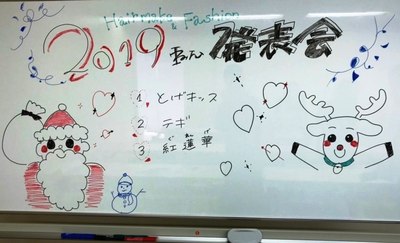 Hairmake & Fashion
2019 発表会
1. とげキッス
2. テギ
3. 紅蓮華